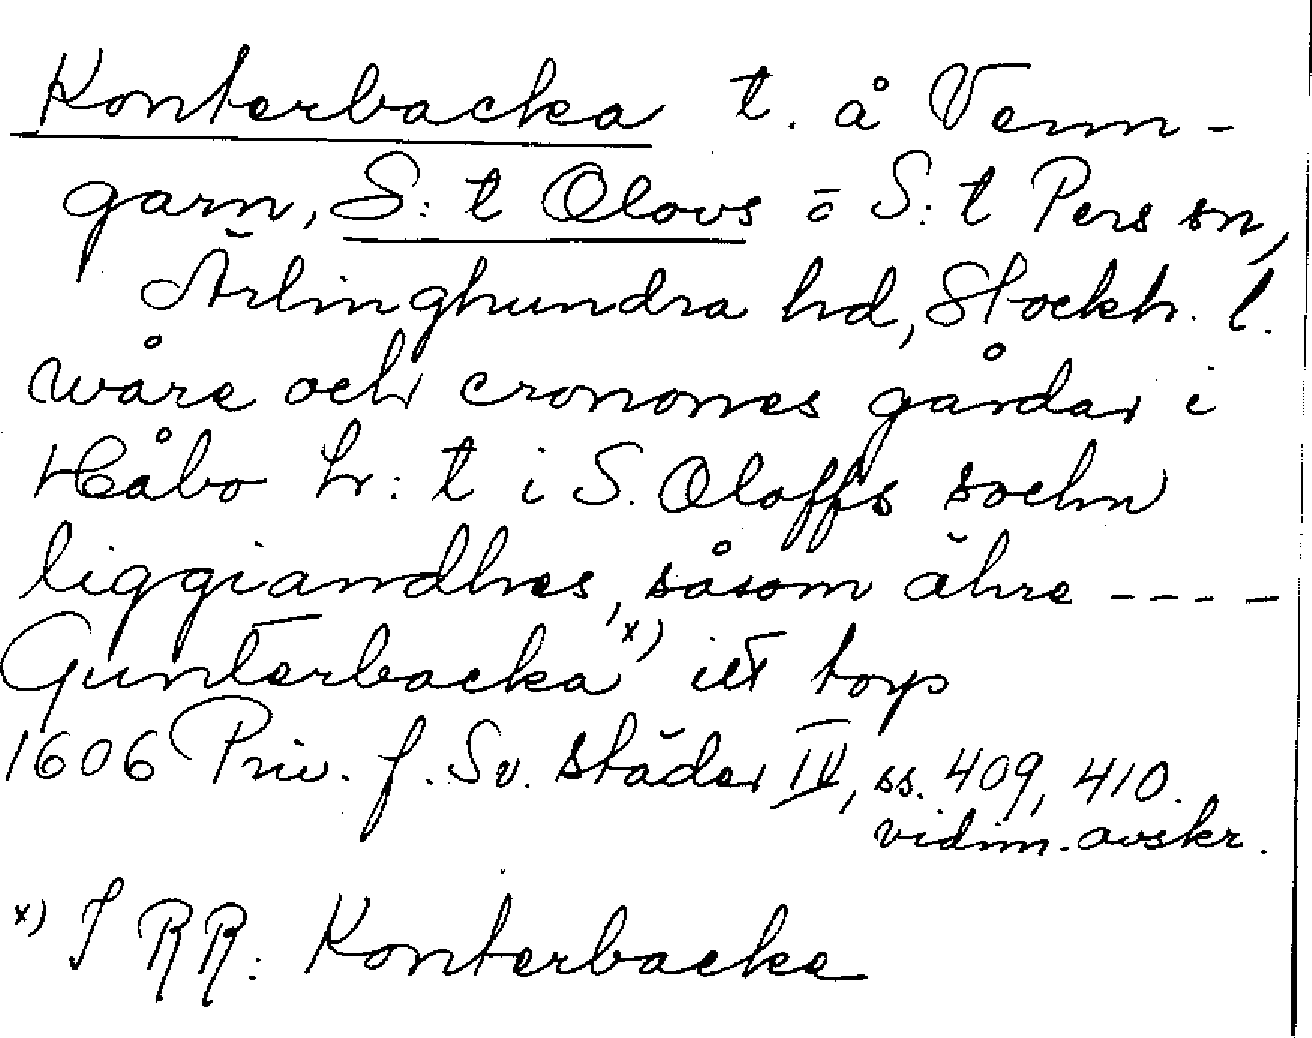 Konterbacka t. å Venn-
garn, S:t Olovs o S:t Pers sn,
Ärlinghundra hd, Stockh. l.
wåre och cronones gårdar i
Håbo hr:t i S. Oloffs sochn
liggiandhes, såsom ähre ----
Gunterbacka x) itt torp
1606 Priv. f. Sv. städer IV, ss. 409, 410.
vidim. avskr.
x) I RR: Konterbacke